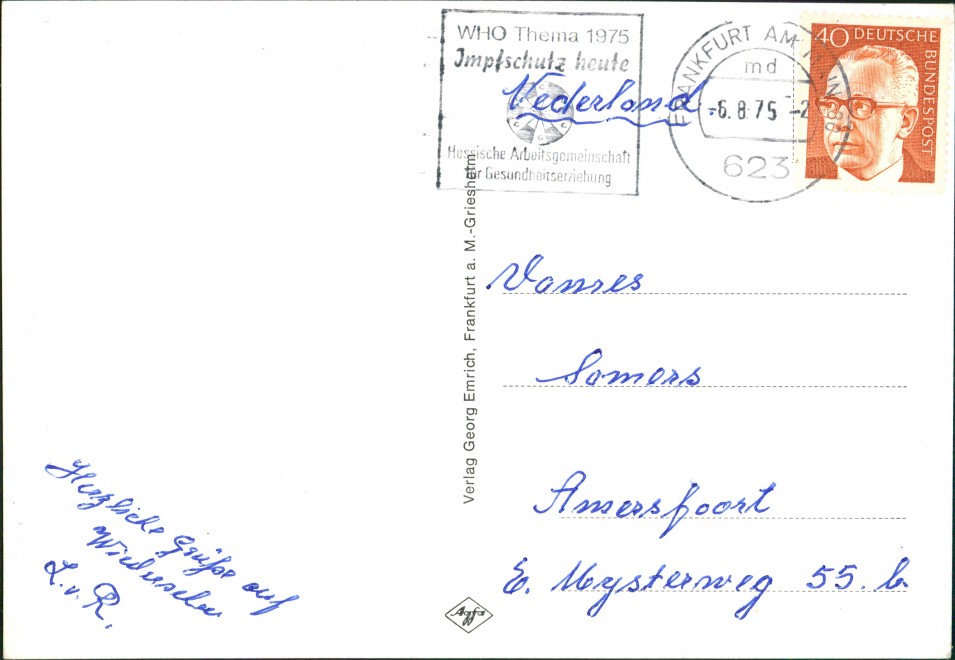 WHO Thema 1975
Impfschutz heute
Hessische Arbeitsgemeinschaft
für Gesundheitserziehung
FRANKFURT AM MAIN
md
-6.8.75
623
40 DEUTSCHE BUNDESPOST
Nederland
Verlag Georg Emrich, Frankfurt a. M.-Griesheim
Somers
Amersfoort
E. Meysterweg 55. b
Herzliche Grüße auf
Wiedersehen
L. v. R.
Agfa